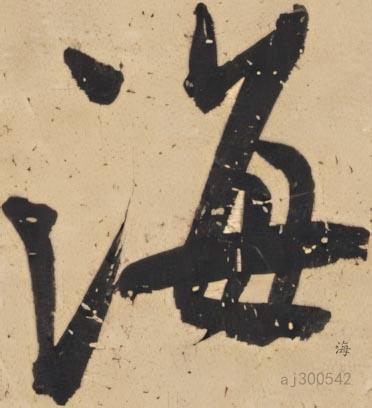 海
海
aj300542